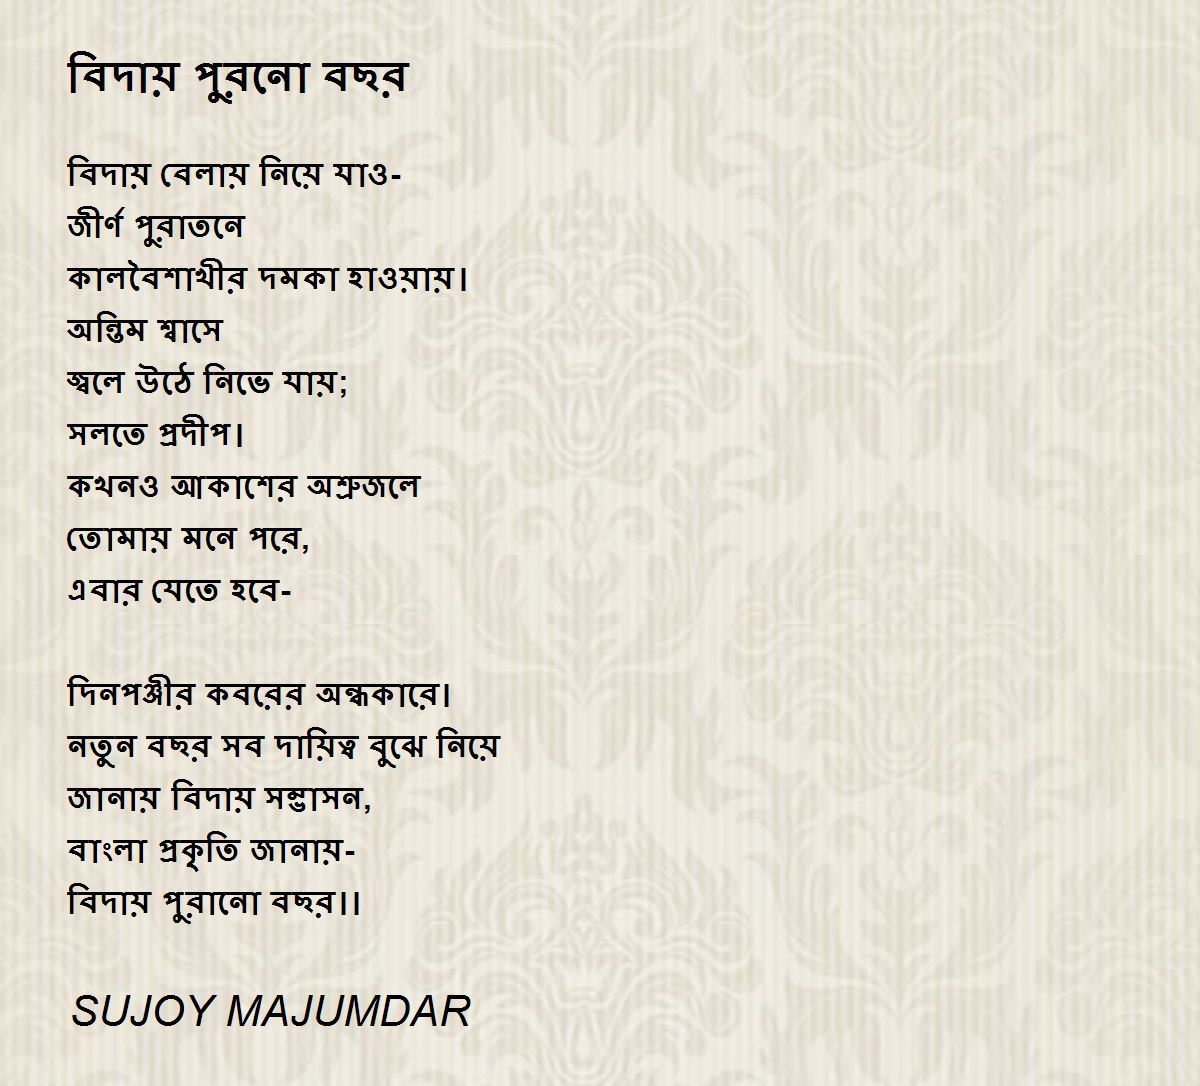 বিদায় পুরনো বছর
বিদায় বেলায় নিয়ে যাও-
জীর্ণ পুরাতনে
কালবৈশাখীর দমকা হাওয়ায়।
অন্তিম শ্বাসে
জ্বলে উঠে নিভে যায়;
সলতে প্রদীপ।
কখনও আকাশের অশ্রুজলে
তোমায় মনে পরে,
এবার যেতে হবে-
দিনপঞ্জীর কবরের অন্ধকারে।
নতুন বছর সব দায়িত্ব বুঝে নিয়ে
জানায় বিদায় সম্ভাসন,
বাংলা প্রকৃতি জানায়-
বিদায় পুরানো বছর।।
SUJOY MAJUMDAR